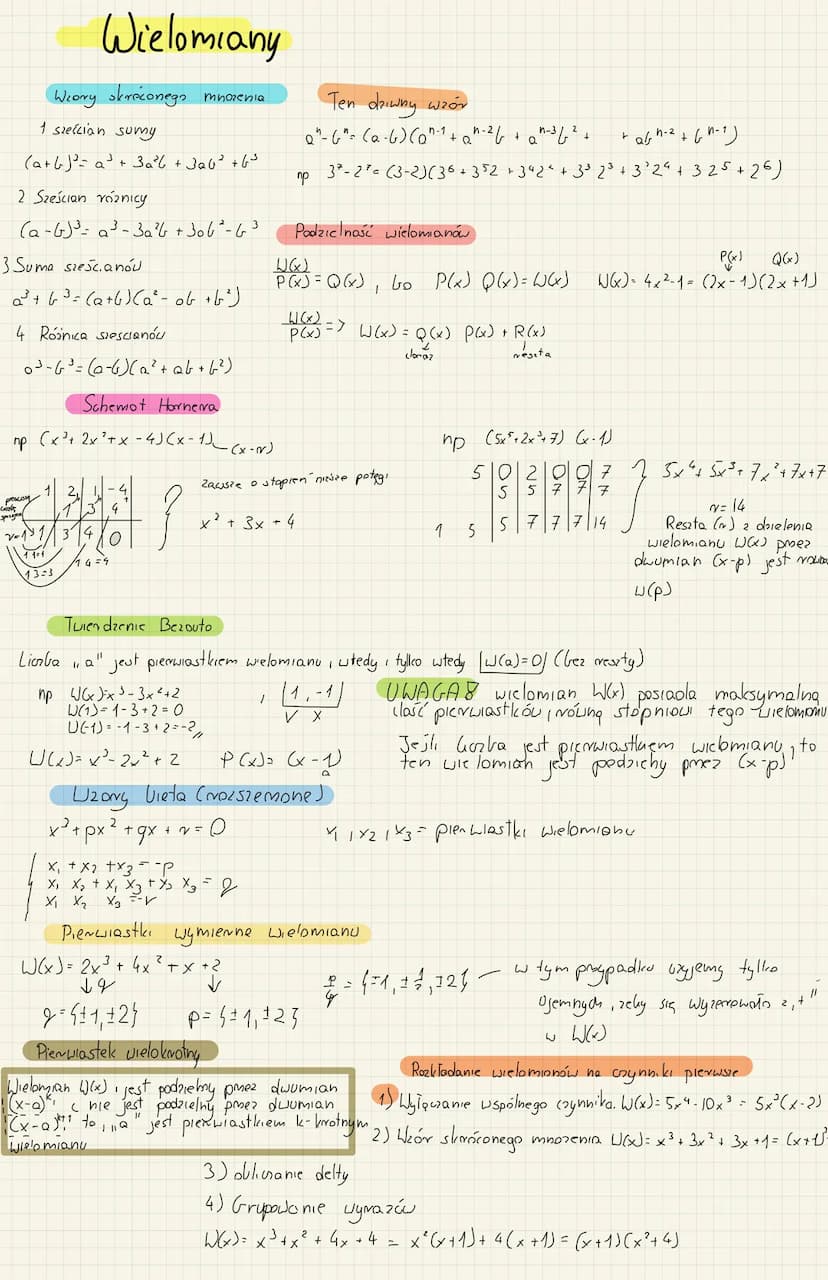 Wielomiany
Wzory skróconego mnożenia
1 sześcian sumy
(a+b)³= a³ + 3a²b + 3ab² + b³
2 Sześcian różnicy
(a-b)³= a³ - 3a²b + 3ab² - b³
3 Suma sześcianów
a³ + b³ = (a+b)(a² - ab + b²)
4 Różnica sześcianów
a³ - b³ = (a-b)(a² + ab + b²)
Ten dziwny wzór
aⁿ - bⁿ = (a-b)(aⁿ⁻¹ + aⁿ⁻²b + aⁿ⁻³b² + + abⁿ⁻² + bⁿ⁻¹)
np 3⁷ - 2⁷ = (3-2)(3⁶ + 3⁵2 + 3⁴2² + 3³ 2³ + 3²2⁴ + 3 2⁵ + 2⁶)
Podzielność wielomianów
W(x)/P(x) = Q(x) , bo P(x) Q(x) = W(x) W(x) = 4x²-1 = (2x-1)(2x+1)
P(x) Q(x)
W(x)/P(x) => W(x) = Q(x) P(x) + R(x)
iloraz reszta
Schemat Hornera
np (x³ + 2x² + x - 4)(x-1) (x-r)
1 2 1 -4
1 3 4
r=1 1 3 4 0
1 1=1
1 3=3
1 4=4
zawsze o stopień niższe potęgi
x² + 3x + 4
np (5x⁵+2x³+7) (x-1)
5 0 2 0 0 7
5 5 7 7 7
1 5 5 7 7 7 14
5x⁴ + 5x³ + 7x² + 7x + 7
r = 14
Reszta (r) z dzielenia
wielomianu W(x) przez
dwumian (x-p) jest równa
W(p)
Twierdzenie Bezouta
Liczba „a" jest pierwiastkiem wielomianu, wtedy i tylko wtedy W(a)=0 (bez reszty)
np W(x)=x³ - 3x²+2 , 1, -1
W(1) = 1 - 3 + 2 = 0 V X
W(-1) = -1 - 3 + 2 = -2
W(x) = x³ - 2x² + 2 P(x) = (x - 1)
a
UWAGA! wielomian W(x) posiada maksymalną
ilość pierwiastków, równą stopniowi tego wielomianu
Jeśli liczba jest pierwiastkiem wielomianu, to
ten wielomian jest podzielny przez (x-p)
Wzory Vieta (rozszerzone)
x³ + px² + qx + r = 0 x₁, x₂, x₃ = pierwiastki wielomianu
x₁ + x₂ + x₃ = -p
x₁ x₂ + x₁ x₃ + x₂ x₃ = q
x₁ x₂ x₃ = -r
Pierwiastki wymierne wielomianu
W(x) = 2x³ + 4x² + x + 2
q
q = {±1, ±2} p = {±1, ±2}
p/q = {±1, ±½, ±2}
w tym przypadku użyjemy tylko
ujemnych, żeby się wyzerowało z „+"
w W(x)
Pierwiastek wielokrotny
Wielomian W(x), jest podzielny przez dwumian
(x-a)ᵏ, i nie jest podzielny przez dwumian
(x-a)ᵏ⁺¹, to „a" jest pierwiastkiem k-krotnym
wielomianu
Rozkładanie wielomianów na czynniki pierwsze
1) Wyłączanie wspólnego czynnika. W(x) = 5x⁴ - 10x³ = 5x³(x-2)
2) Wzór skróconego mnożenia W(x) = x³ + 3x² + 3x + 1 = (x+1)³
3) obliczanie delty
4) Grupowanie wyrazów
W(x) = x³ + x² + 4x + 4 = x²(x+1) + 4(x+1) = (x+1)(x²+4)